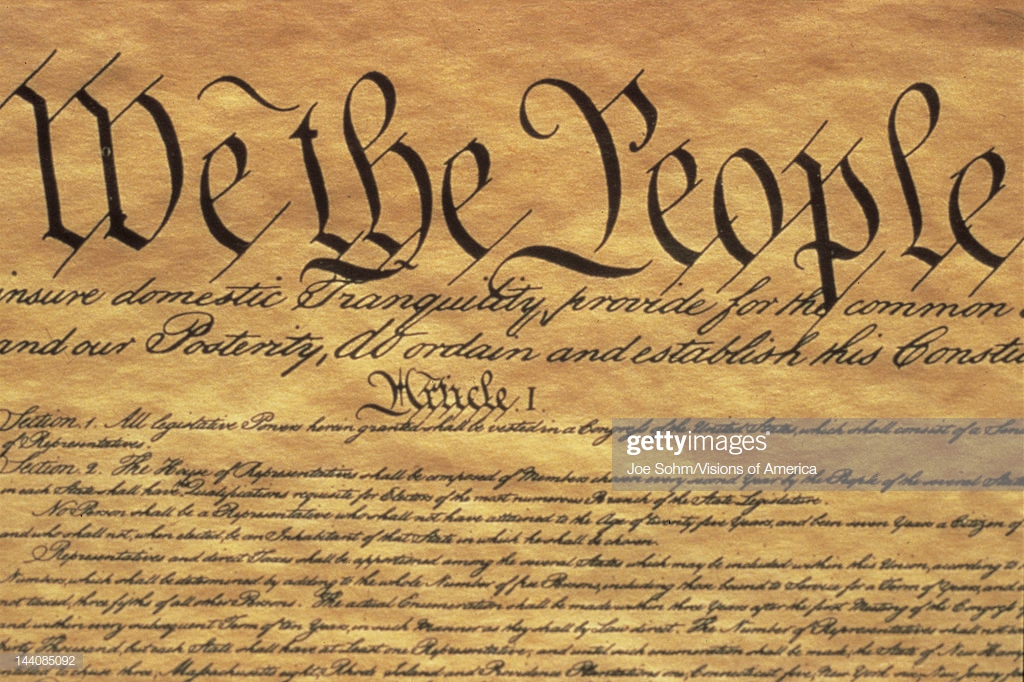 We the People
insure domestic Tranquility, provide for the common
and our Posterity, do ordain and establish this Constitu
Article. I.
Section. 1. All legislative Powers herein granted shall be vested in a Congress of the United States, which shall consist of a Sen
of Representatives.
gettyimages®
Joe Sohm/Visions of America
Section. 2. The House of Representatives shall be composed of Members chosen every second Year by the People of the several States
in each State shall have the Qualifications requisite for Electors of the most numerous Branch of the State Legislature.
No Person shall be a Representative who shall not have attained to the Age of twenty five Years, and been seven Years a Citizen of
and who shall not, when elected, be an Inhabitant of that State in which he shall be chosen.
Representatives and direct Taxes shall be apportioned among the several States which may be included within this Union, according to
Numbers, which shall be determined by adding to the whole Number of free Persons, including those bound to Service for a Term of Years, and
not taxed, three fifths of all other Persons. The actual Enumeration shall be made within three Years after the first Meeting of the Congress
and within every subsequent Term of ten Years, in such Manner as they shall by Law direct. The Number of Representatives shall not
Thousand, but each State shall have at Least one Representative; and until such enumeration shall be made, the State of New Hamp
entitled to chuse three, Massachusetts eight, Rhode Island and Providence Plantations one, Connecticut five, New York six, New Jersey
144085092